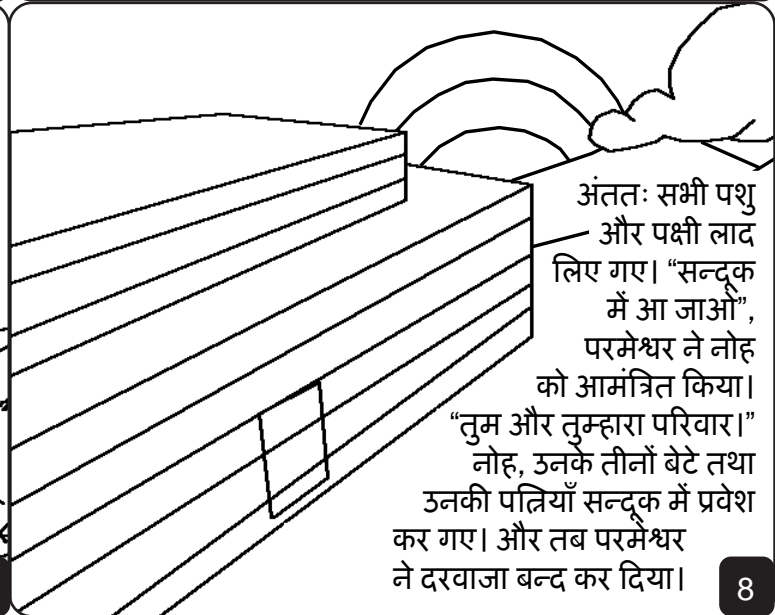 अंततः सभी पशु
और पक्षी लाद
लिए गए। “सन्दूक
में आ जाओ”,
परमेश्वर ने नोह
को आमंत्रित किया।
“तुम और तुम्हारा परिवार।”
नोह, उनके तीनों बेटे तथा
उनकी पत्नियाँ सन्दूक में प्रवेश
कर गए। और तब परमेश्वर
ने दरवाजा बन्द कर दिया।
8